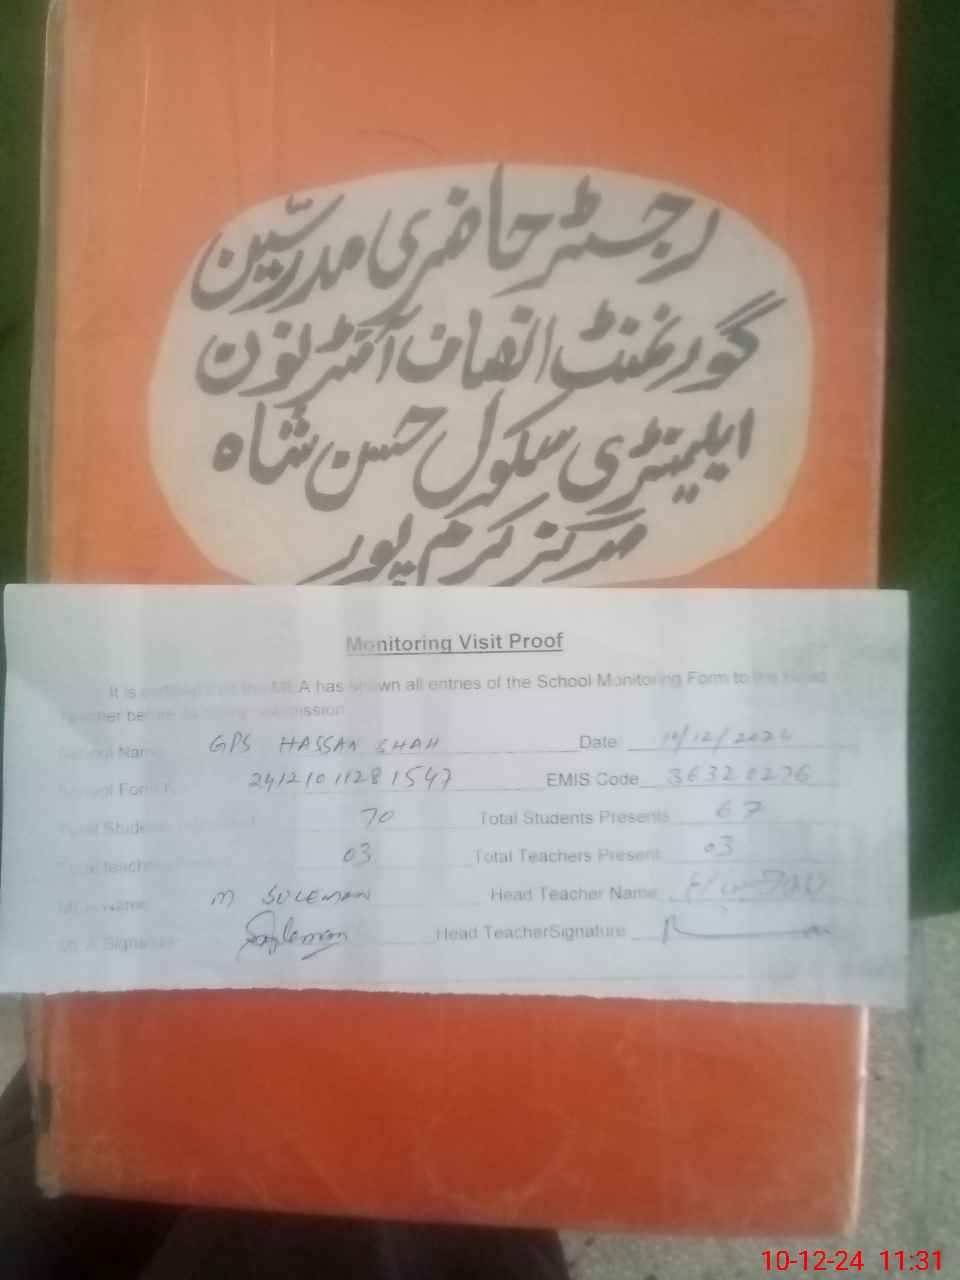 رجسٹر حاضری مدرسین
گورنمنٹ انصاف آفٹر نون
ایلیمنٹری سکول حسن شاہ
مرکز کرم پور
Monitoring Visit Proof
It is certified that the MEA has shown all entries of the School Monitoring Form to the Head
Teacher before its submission
School Name GPS HASSAN SHAH Date 10/12/2024
School Form 24121011281547 EMIS Code 36320276
Total Students 70 Total Students Presents 67
Total Teachers 03 Total Teachers Present 03
MEA Name M SULEMAN Head Teacher Name
MEA Signature Suleman Head TeacherSignature
10-12-24 11:31